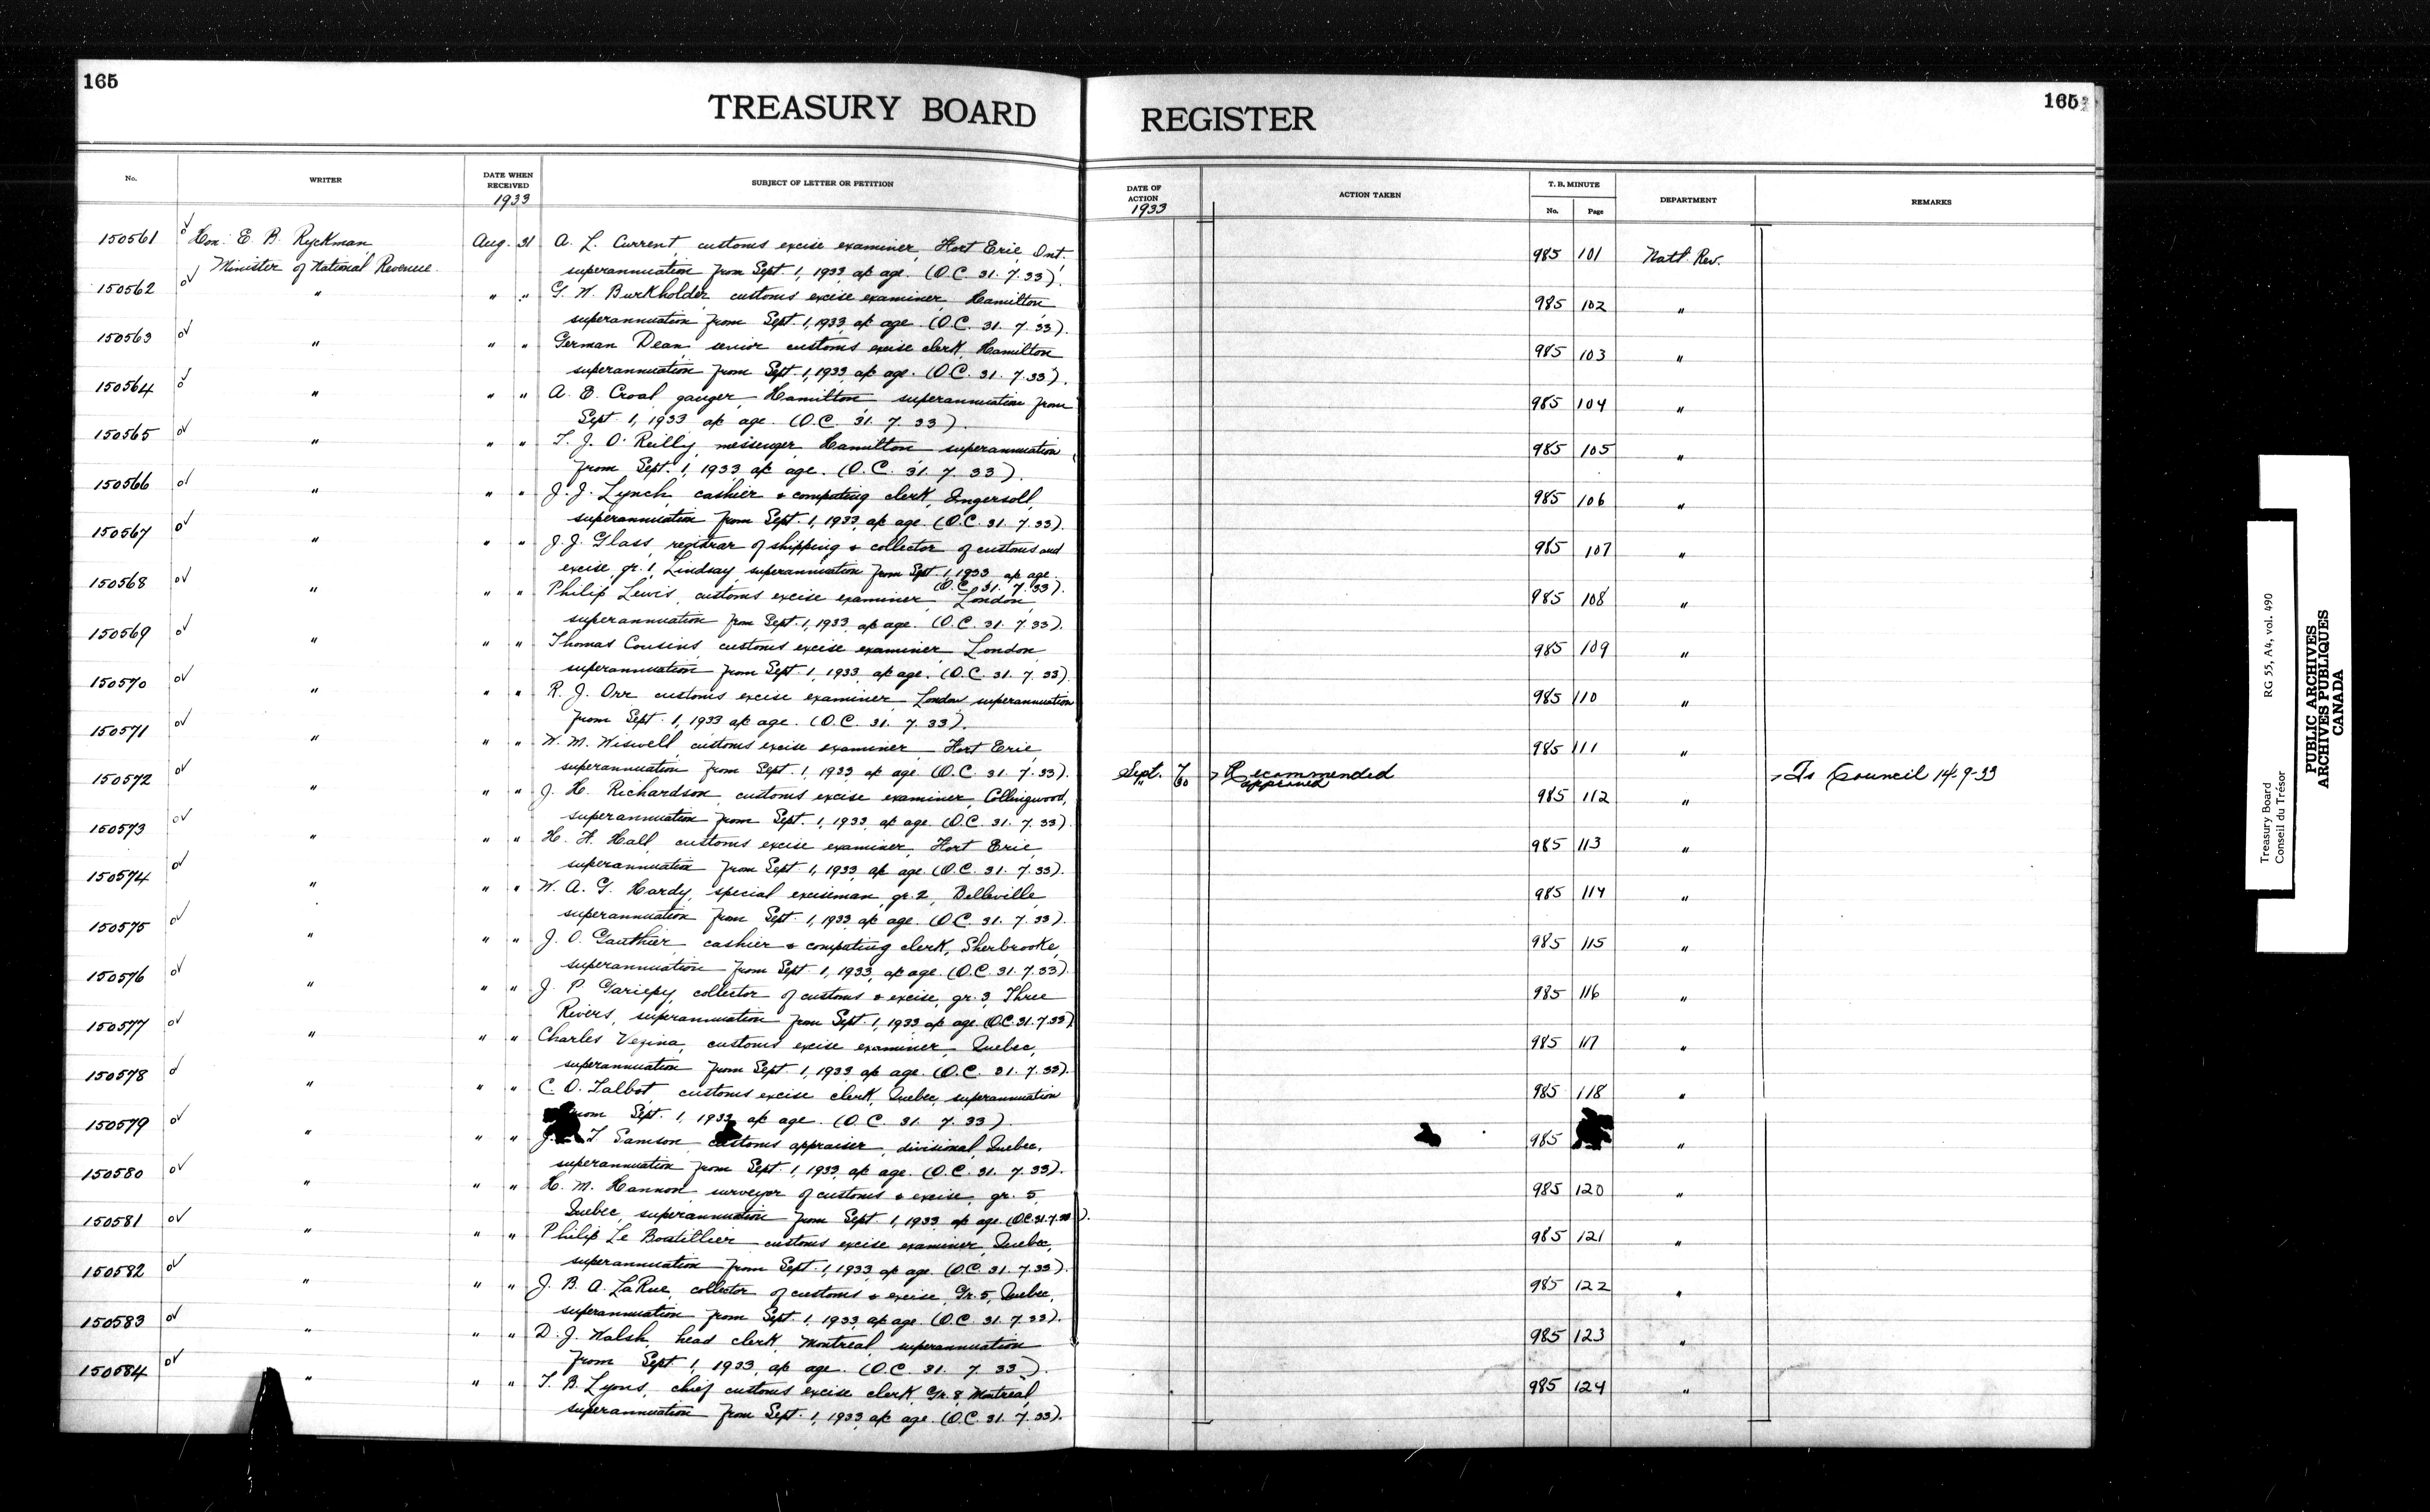 165
165
TREASURY BOARD REGISTER
No. WRITER DATE WHEN RECEIVED 1933 SUBJECT OF LETTER OR PETITION DATE OF ACTION 1933 ACTION TAKEN T. B. MINUTE No. Page DEPARTMENT REMARKS
150561 Hon. E. B. Ryckman Aug. 31 A. L. Current, customs excise examiner, Fort Erie, Ont. 985 101 Natl. Rev.
Minister of National Revenue superannuation from Sept. 1, 1933, a/c age. (O.C. 31. 7. 33).
150562 " " " G. W. Burkholder, customs excise examiner, Hamilton 985 102 "
superannuation from Sept. 1, 1933, a/c age. (O.C. 31. 7. 33).
150563 " " " German Dean, senior customs excise clerk, Hamilton 985 103 "
superannuation from Sept. 1, 1933, a/c age. (O.C. 31. 7. 33).
150564 " " " A. E. Croal, gauger, Hamilton superannuation from 985 104 "
Sept. 1, 1933 a/c age. (O.C. 31. 7. 33).
150565 " " " T. J. O'Reilly, messenger, Hamilton superannuation 985 105 "
from Sept. 1, 1933 a/c age. (O.C. 31. 7. 33).
150566 " " " J. J. Lynch, cashier & computing clerk, Ingersoll, 985 106 "
superannuation from Sept. 1, 1933, a/c age. (O.C. 31. 7. 33).
150567 " " " J. J. Glass, registrar of shipping & collector of customs and 985 107 "
excise gr. 1, Lindsay, superannuation from Sept. 1, 1933, a/c age.
(O.C. 31. 7. 33).
150568 " " " Philip Lewis, customs excise examiner, London, 985 108 "
superannuation from Sept. 1, 1933, a/c age. (O.C. 31. 7. 33).
150569 " " " Thomas Cousins, customs excise examiner, London 985 109 "
superannuation from Sept. 1, 1933, a/c age. (O.C. 31. 7. 33).
150570 " " " R. J. Orr customs excise examiner, London, superannuation 985 110 "
from Sept. 1, 1933 a/c age. (O.C. 31. 7. 33).
150571 " " " W. M. Wiswell, customs excise examiner, Fort Erie 985 111 "
superannuation from Sept. 1, 1933, a/c age. (O.C. 31. 7. 33). Sept. 7 Recommended To Council 14-9-33
" 30 approved
150572 " " " J. H. Richardson, customs excise examiner, Collingwood, 985 112 "
superannuation from Sept. 1, 1933, a/c age. (O.C. 31. 7. 33).
150573 " " " H. F. Hall, customs excise examiner, Fort Erie 985 113 "
superannuation from Sept. 1, 1933, a/c age. (O.C. 31. 7. 33).
150574 " " " W. A. G. Hardy, special exciseman, gr. 2, Belleville, 985 114 "
superannuation from Sept. 1, 1933, a/c age. (O.C. 31. 7. 33).
150575 " " " J. O. Gauthier, cashier & computing clerk, Sherbrooke, 985 115 "
superannuation from Sept. 1, 1933, a/c age. (O.C. 31. 7. 33).
150576 " " " J. P. Gariepy, collector of customs & excise, gr. 3, Three 985 116 "
Rivers, superannuation from Sept. 1, 1933, a/c age. (O.C. 31. 7. 33)
150577 " " " Charles Vezina, customs excise examiner, Quebec, 985 117 "
superannuation from Sept. 1, 1933 a/c age. (O.C. 31. 7. 33).
150578 " " " C. O. Talbot, customs excise clerk, Quebec, superannuation 985 118 "
from Sept. 1, 1933, a/c age. (O.C. 31. 7. 33).
150579 " " " J. T. Samson customs appraiser, divisional, Quebec, 985 "
superannuation from Sept. 1, 1933, a/c age. (O.C. 31. 7. 33).
150580 " " " H. M. Hannon, surveyor of customs & excise, gr. 5, 985 120 "
Quebec, superannuation from Sept. 1, 1933 a/c age. (O.C. 31. 7. 33).
150581 " " " Philip Le Boutillier customs excise examiner, Quebec, 985 121 "
superannuation from Sept. 1, 1933, a/c age. (O.C. 31. 7. 33).
150582 " " " J. B. A. LaRue, collector of customs & excise, Gr. 5, Quebec, 985 122 "
superannuation from Sept. 1, 1933, a/c age. (O.C. 31. 7. 33).
150583 " " " D. J. Walsh, head clerk, Montreal, superannuation 985 123 "
from Sept. 1, 1933, a/c age. (O.C. 31. 7. 33).
150584 " " " T. B. Lyons, chief customs excise clerk, Gr. 8, Montreal, 985 124 "
superannuation from Sept. 1, 1933, a/c age. (O.C. 31. 7. 33).
Treasury Board RG 55, A4, vol. 490
Conseil du Trésor
PUBLIC ARCHIVES
ARCHIVES PUBLIQUES
CANADA